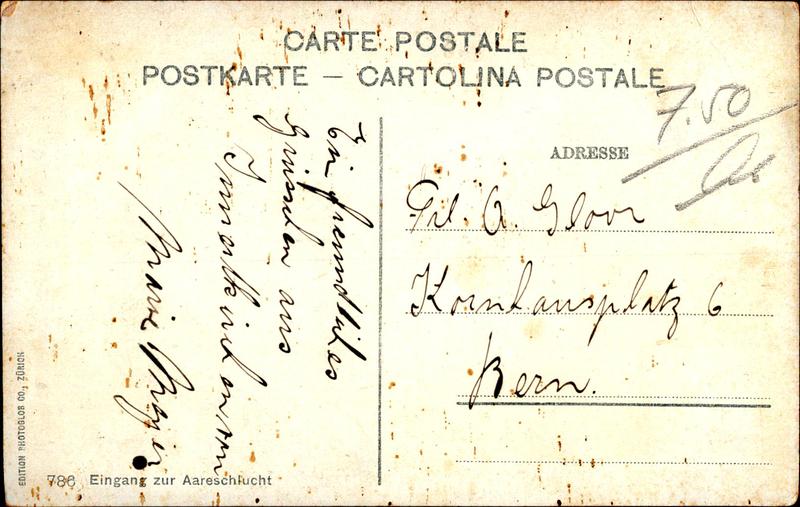 CARTE POSTALE
POSTKARTE — CARTOLINA POSTALE
7.50
ADRESSE
Frl. A. Gloor
Kornhausplatz 6
Bern.
Ein freundliches
Grüsschen aus
Innertkirchen von
Marie
786 Eingang zur Aareschlucht
EDITION PHOTOGLOB CO., ZÜRICH